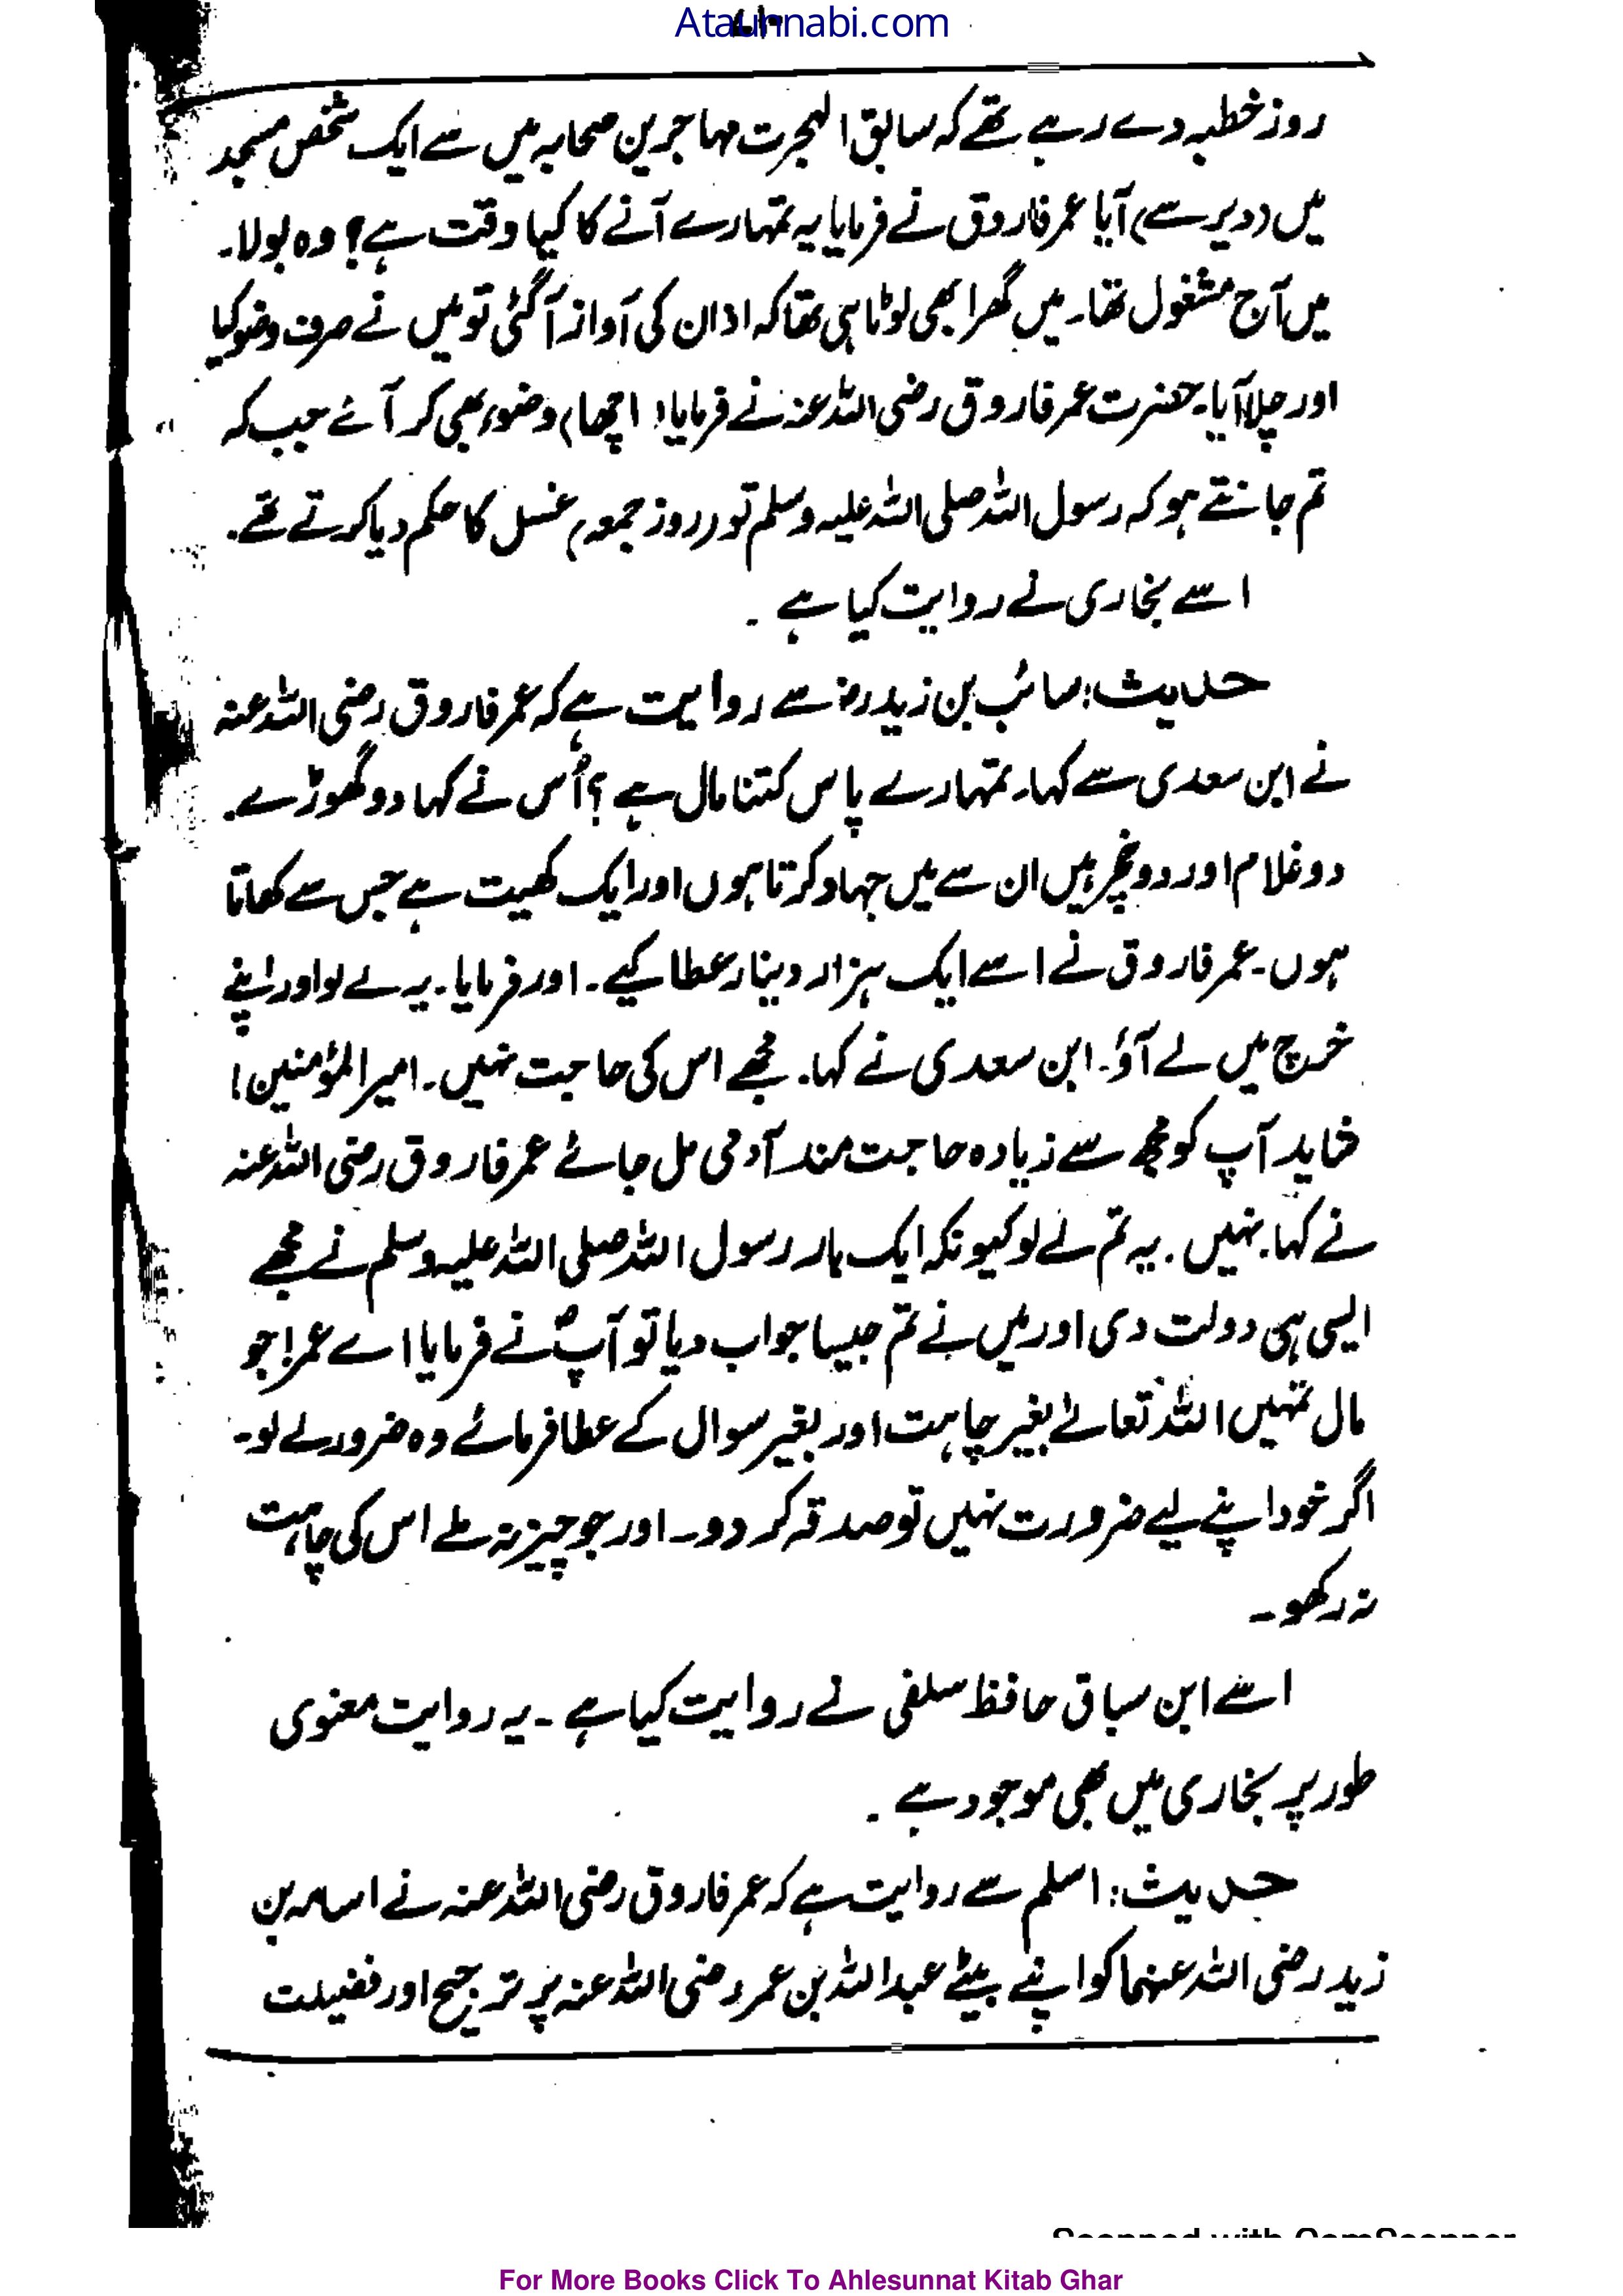 Ataunnabi.com
روز خطبہ دے رہے تھے کہ سابق الہجرت مہاجرین صحابہ میں سے ایک شخص مسجد
میں (دیر سے) آیا عمر فاروق نے فرمایا یہ تمہارے آنے کا کیا وقت ہے؟ وہ بولا۔
میں آج مشغول تھا۔ میں گھر ابھی لوٹا ہی تھا کہ اذان کی آواز آگئی تو میں نے صرف وضو کیا
اور چلا آیا۔ حضرت عمر فاروق رضی اللہ عنہ نے فرمایا (اچھا) وضوء بھی کر آئے جب کہ
تم جانتے ہو کہ رسول اللہ صلی اللہ علیہ وسلم تو (روز جمعہ) غسل کا حکم دیا کرتے تھے۔
اسے بخاری نے روایت کیا ہے۔
حدیث: سائب بن زیدرض سے روایت ہے کہ عمر فاروق رضی اللہ عنہ
نے ابن سعدی سے کہا۔ تمہارے پاس کتنا مال ہے؟ اُس نے کہا دو گھوڑے۔
دو غلام اور دو خچر ہیں ان سے میں جہاد کرتا ہوں اور ایک کھیت ہے جس سے کھاتا
ہوں۔ عمر فاروق نے اسے ایک ہزار دینار عطا کیے۔ اور فرمایا۔ یہ لے لو اور اپنے
خرچ میں لے آؤ۔ ابن سعدی نے کہا۔ مجھے اس کی حاجت نہیں۔ امیر المؤمنین!
شاید آپ کو مجھ سے زیادہ حاجت مند آدمی مل جائے عمر فاروق رضی اللہ عنہ
نے کہا۔ نہیں۔ یہ تم لے لو کیونکہ ایک بار رسول اللہ صلی اللہ علیہ وسلم نے مجھے
ایسی ہی دولت دی اور میں نے تم جیسا جواب دیا تو آپؐ نے فرمایا اے عمر! جو
مال تمہیں اللہ تعالےٰ بغیر چاہت اور بغیر سوال کے عطا فرمائے وہ ضرور لے لو۔
اگر خود اپنے لیے ضرورت نہیں تو صدقہ کر دو۔ اور جو چیز نہ ملے اس کی چاہت
نہ رکھو۔
اسے ابن سباق حافظ سلفی نے روایت کیا ہے۔ یہ روایت معنوی
طور پر بخاری میں بھی موجود ہے۔
حدیث: اسلم سے روایت ہے کہ عمر فاروق رضی اللہ عنہ نے اسامہ بن
زید رضی اللہ عنہما کو اپنے بیٹے عبداللہ بن عمر رضی اللہ عنہ پر ترجیح اور فضیلت
Scanned with CamScanner
For More Books Click To Ahlesunnat Kitab Ghar